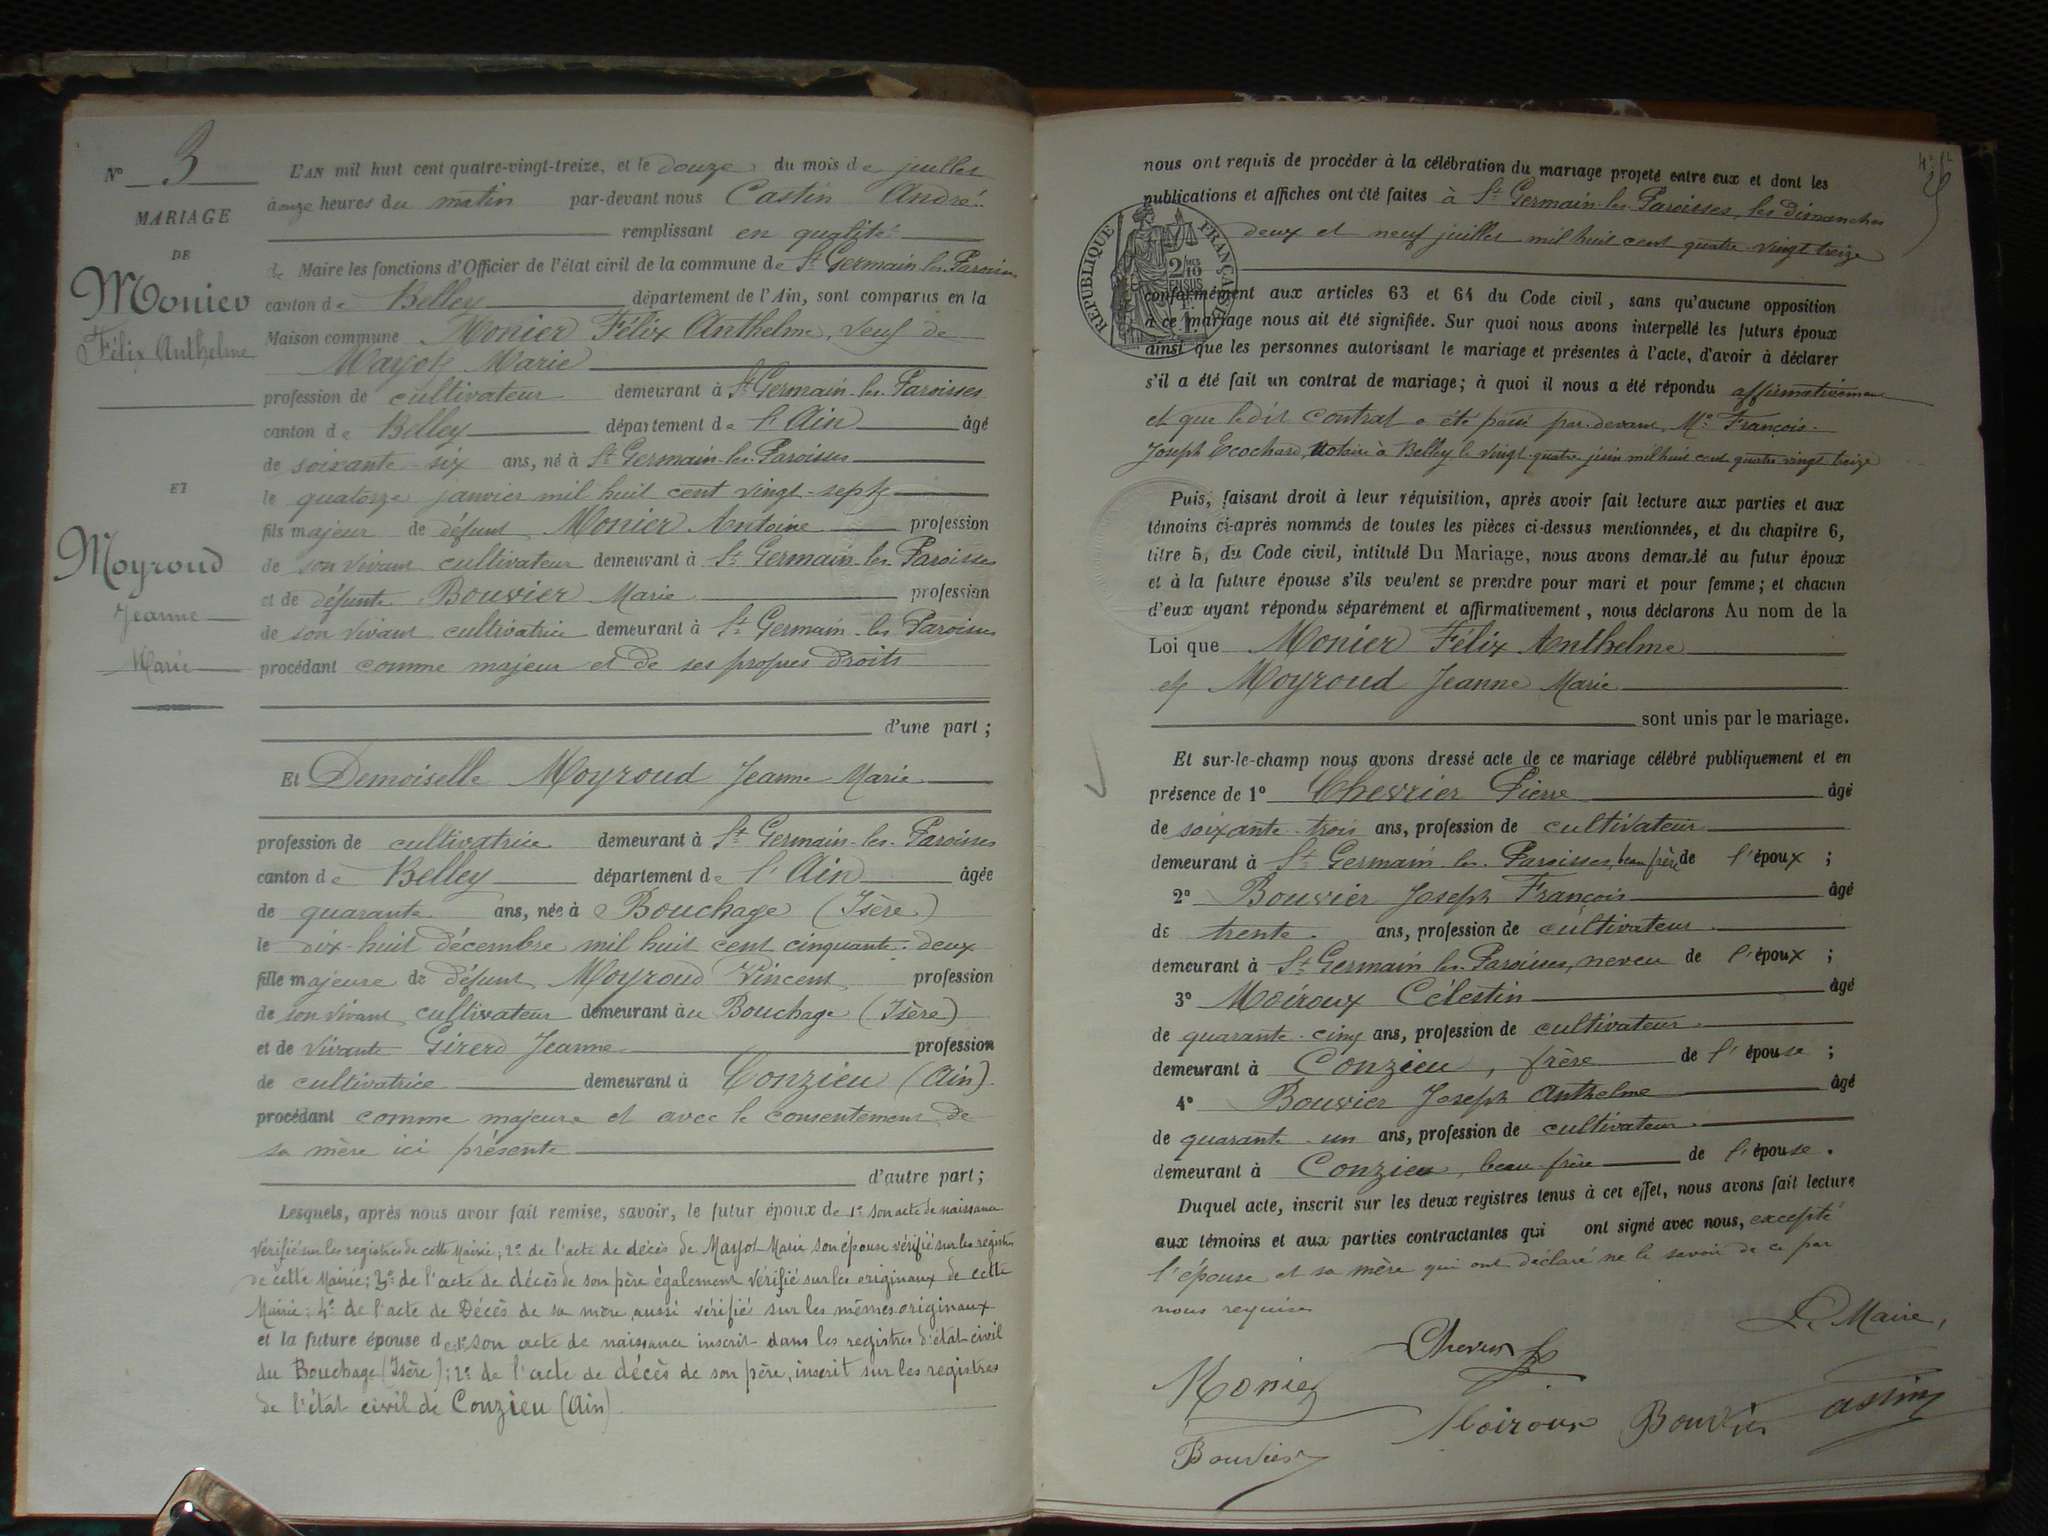 N° 3
MARIAGE
DE
Monier
Félix Anthelme
ET
Moyroud
Jeanne
Marie
L'AN mil huit cent quatre-vingt-treize, et le douze du mois de juillet
à onze heures du matin par-devant nous Castin André
remplissant en qualité
de Maire les fonctions d'Officier de l'état civil de la commune de St Germain-les-Paroisses
canton de Belley département de l'Ain, sont comparus en la
Maison commune Monier Félix Anthelme, veuf de
Mayot Marie
profession de cultivateur demeurant à St Germain-les-Paroisses
canton de Belley département de l'Ain âgé
de soixante-six ans, né à St Germain-les-Paroisses
le quatorze janvier mil huit cent vingt-sept
fils majeur de défunt Monier Antoine profession
de son vivant cultivateur demeurant à St Germain-les-Paroisses
et de défunte Bouvier Marie profession
de son vivant cultivatrice demeurant à St Germain-les-Paroisses
procédant comme majeur et de ses propres droits
d'une part ;
Et Demoiselle Moyroud Jeanne Marie
profession de cultivatrice demeurant à St Germain-les-Paroisses
canton de Belley département de l'Ain âgée
de quarante ans, née à Bouchage (Isère)
le dix-huit décembre mil huit cent cinquante-deux
fille majeure de défunt Moyroud Vincent profession
de son vivant cultivateur demeurant au Bouchage (Isère)
et de vivante Girerd Jeanne profession
de cultivatrice demeurant à Conzieu (Ain).
procédant comme majeure et avec le consentement de
sa mère ici présente
d'autre part ;
Lesquels, après nous avoir fait remise, savoir, le futur époux de 1° son acte de naissance
vérifié sur les registres de cette Mairie; 2° de l'acte de décès de Mayot Marie son épouse vérifié sur les registres
de cette Mairie; 3° de l'acte de décès de son père également vérifié sur les originaux de cette
Mairie; 4° de l'acte de Décès de sa mère, aussi vérifié sur les mêmes originaux
et la future épouse de 1° son acte de naissance inscrit dans les registres d'état civil
du Bouchage (Isère); 2° de l'acte de décès de son père, inscrit sur les registres
de l'état civil de Conzieu (Ain)
nous ont requis de procéder à la célébration du mariage projeté entre eux et dont les
publications et affiches ont été faites à St Germain-les-Paroisses, les dimanches
deux et neuf juillet mil huit cent quatre-vingt-treize
RÉPUBLIQUE FRANÇAISE
2/10 EN SUS
conformément aux articles 63 et 64 du Code civil, sans qu'aucune opposition
à ce mariage nous ait été signifiée. Sur quoi nous avons interpellé les futurs époux
ainsi que les personnes autorisant le mariage et présentes à l'acte, d'avoir à déclarer
s'il a été fait un contrat de mariage ; à quoi il nous a été répondu affirmativement
et que ledit contrat a été passé par-devant Me François
Joseph Ecochard, Notaire à Belley le vingt-quatre juin mil huit cent quatre vingt treize
Puis, faisant droit à leur réquisition, après avoir fait lecture aux parties et aux
témoins ci-après nommés de toutes les pièces ci-dessus mentionnées, et du chapitre 6,
titre 5, du Code civil, intitulé Du Mariage, nous avons demandé au futur époux
et à la future épouse s'ils veulent se prendre pour mari et pour femme ; et chacun
d'eux ayant répondu séparément et affirmativement, nous déclarons Au nom de la
Loi que Monier Félix Anthelme
et Moyroud Jeanne Marie
sont unis par le mariage.
Et sur-le-champ nous avons dressé acte de ce mariage célébré publiquement et en
présence de 1° Chevrier Pierre âgé
de soixante-trois ans, profession de cultivateur
demeurant à St Germain-les-Paroisses, beau frère de l'époux ;
2° Bouvier Joseph François âgé
de trente ans, profession de cultivateur
demeurant à St Germain-les-Paroisses, neveu de l'époux ;
3° Moiroux Célestin âgé
de quarante-cinq ans, profession de cultivateur
demeurant à Conzieu, frère de l'épouse ;
4° Bouvier Joseph Anthelme âgé
de quarante-un ans, profession de cultivateur
demeurant à Conzieu, beau-frère de l'épouse.
Duquel acte, inscrit sur les deux registres tenus à cet effet, nous avons fait lecture
aux témoins et aux parties contractantes qui ont signé avec nous, excepté
l'épouse et sa mère qui ont déclaré ne le savoir de ce par
nous requises
Le Maire,
Monier
Moiroux
Bouvier
Castin
Bouvier